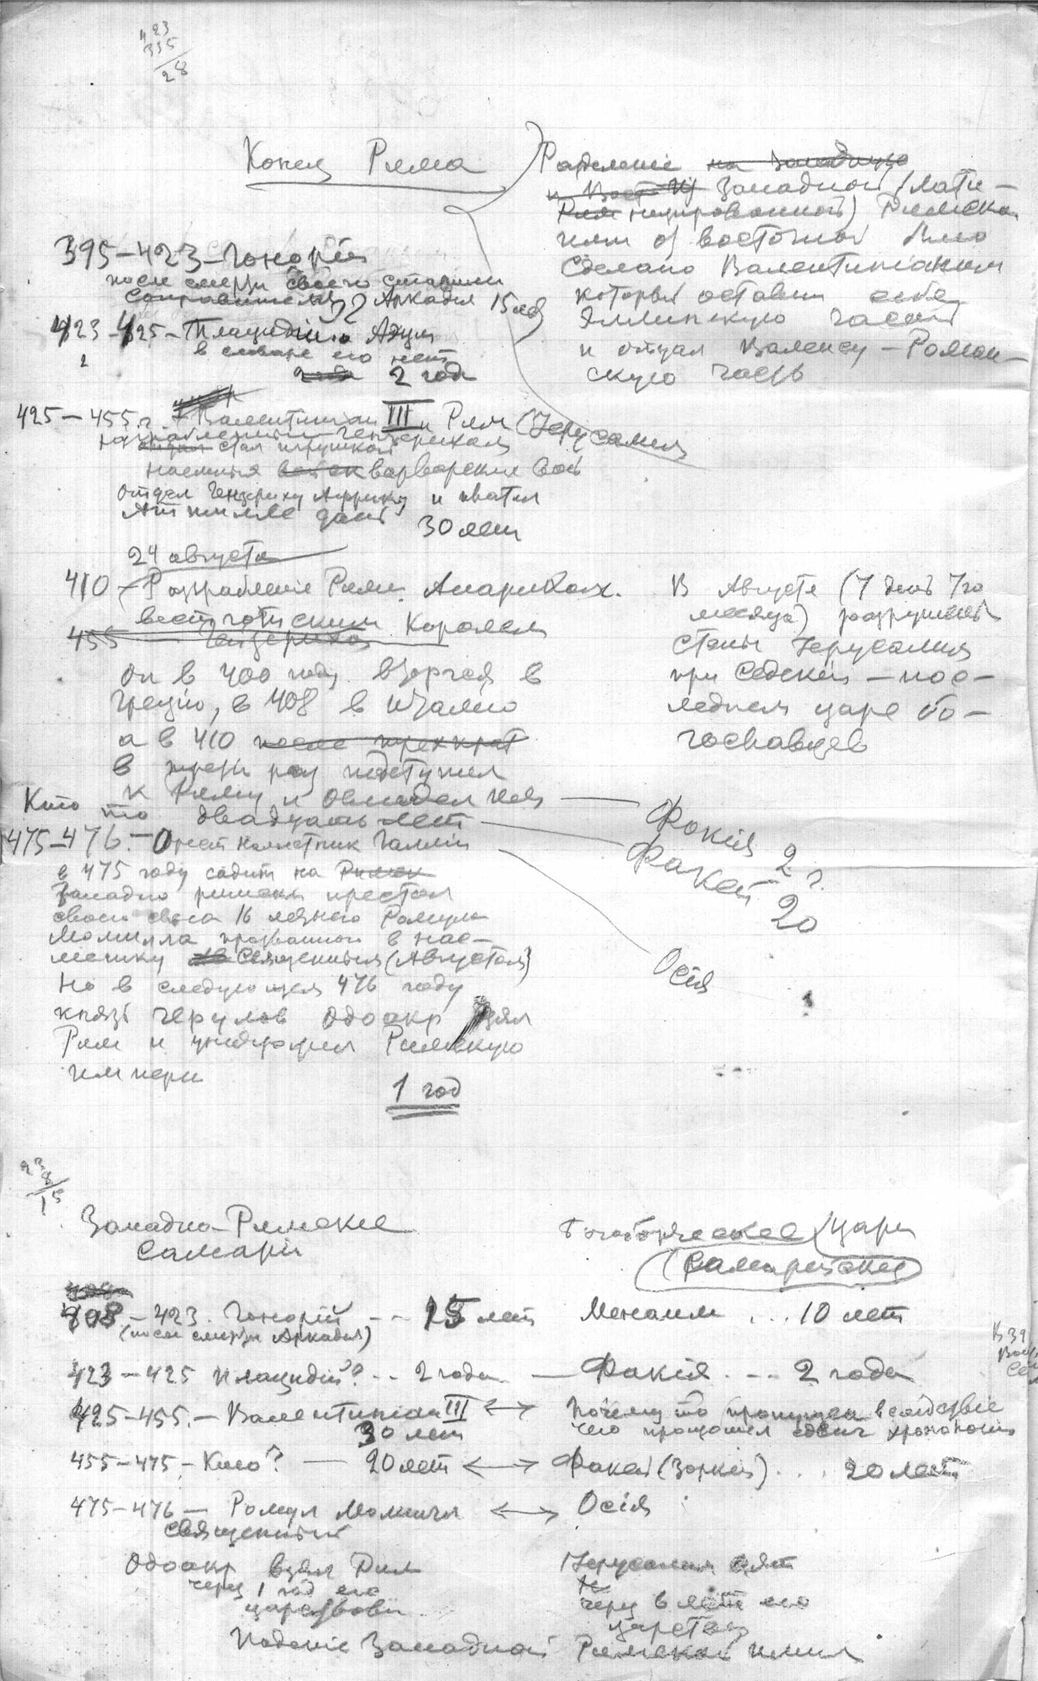 423
395
28
Конец Рима
Разделение на Западную
и Вост
Западной (лати-
Рим низированной) Римской
империи от восточной было
сделано Валентинианом
который оставил себе
Эллинскую часть
и отдал Валенсу – Роман-
скую часть
395–423 – Гонорий
после смерти своего старшего
соправителя Аркадия 15 лет
423–425 – Плацидий
в словаре его нет
2 года
425–455 г. Валентиниан III и Рим (Иерусалим
стал игрушкой
наемных варварских войск
отдал Гензериху Африку и платил
Аттилле дань
30 лет
24 августа
410 – Разграбление Рима Аларихом
вестготским Королем
455 Гензерихом
он в 400 году вторгся в
Грецию, в 408 в Италию
а в 410 после трехкрат
в третий раз подступил
к Риму и овладел им
В Августе (7 день 7го
месяца) разрушены
стены Иерусалима
при Седекии – пос-
леднем царе бо-
гославцев
Кто то двадцать лет
Факия 2 г.
Факей 20
Осия
475–476 – Орест наместник Галлии
в 475 году садит на Римск
Западно римский престол
своего сына 16 летнего Ромула
Момилла прозванного в нас-
мешку Священным (Августом)
Но в следующем 476 году
князь герулов Одоакр взял
Рим и уничтожил Римскую
империю
1 год
23
8
15
Западно-Римские
самари
Богоборческие цари
(Самарийские)
408–423 Гонорий – – 15 лет
Менаим ... 10 лет
(после смерти Аркадия)
423–425 Плацидий? – – 2 года – Факия – – – 2 года
425–455 – Валентиниан III ↔ Почему то пропущен вследствие
30 лет
чего произошел сдвиг хронологии
455–475 – Кто? – 20 лет ↔ Факей (Зоркий) ... 20 лет
475–476 – Ромул Момилл ↔ Осия
священный
Одоакр взял Рим
Иерусалим взят
через 1 год его
через 9 лет его
царствов
царства
Падение Западной Римской импер